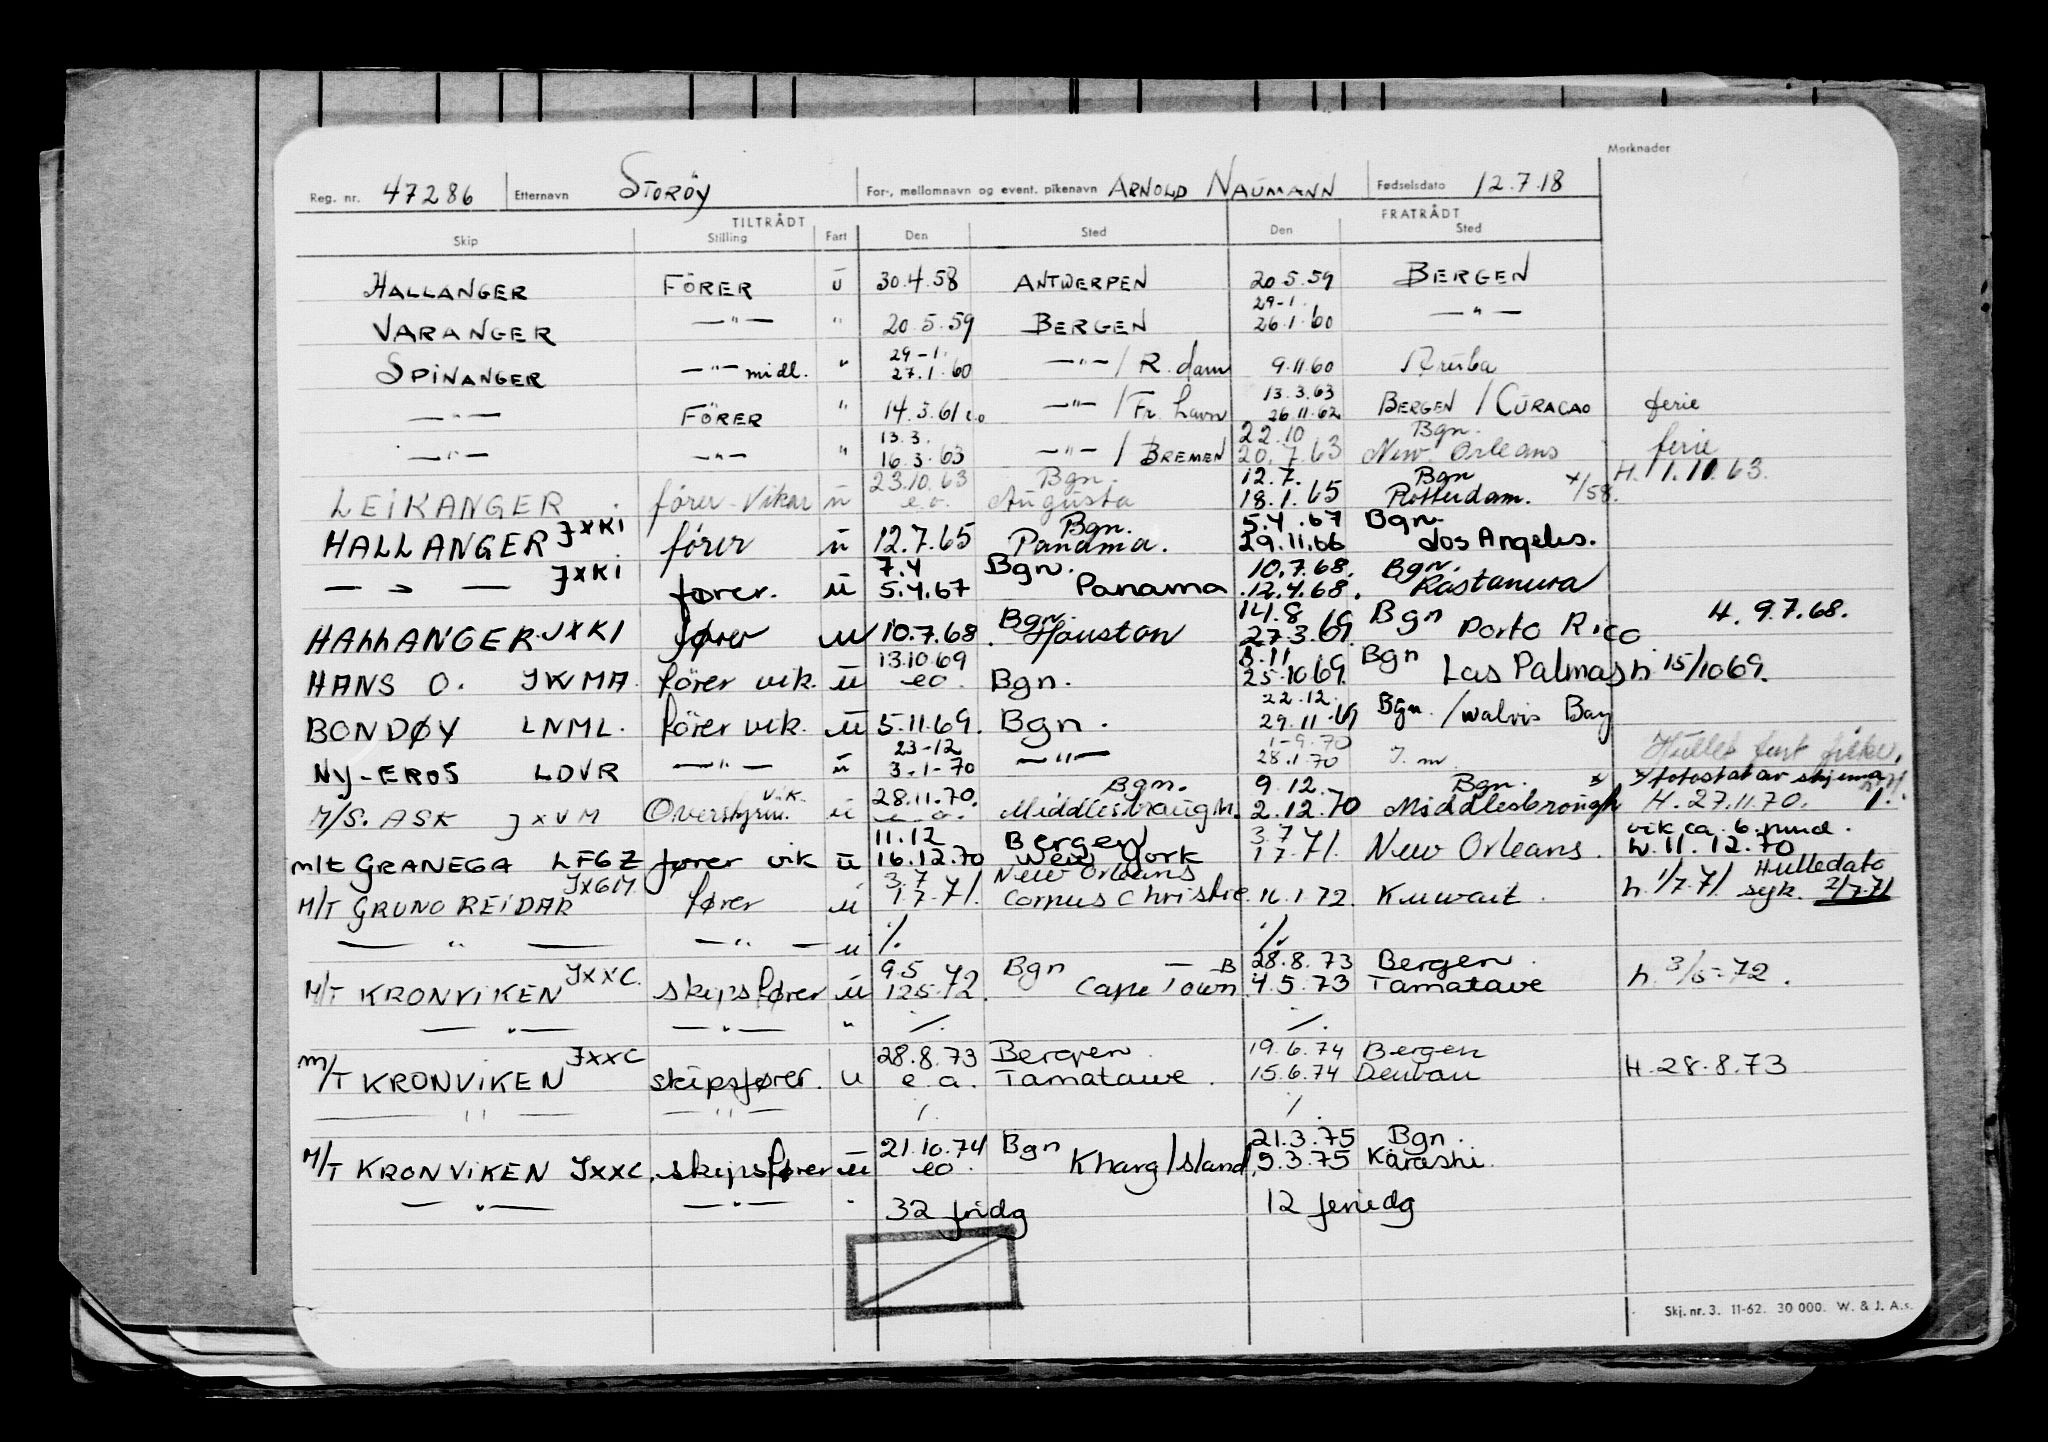 Morknader
Reg. nr. 47286 Etternavn STORÖY For-, mellomnavn og event. pikenavn ARNOLD NAUMANN Fødselsdato 12.7.18
TILTRÅDT FRATRÅDT
Skip Stilling Fart Den Sted Den Sted
HALLANGER FÖRER u 30.4.58 ANTWERPEN 20.5.59 BERGEN
29-1.
VARANGER — " — " 20.5.59 BERGEN 26.1.60 — " —
29-1.
SPINANGER — " — midl. " 27.1.60 — " — / R.dam 9.11.60 Aruba
13.3.63
— " — FÖRER " 14.3.61 — " — / Fr. havn 26.11.62 BERGEN / CURACAO ferie
13.3. 22.10 Bgn.
— " — — " — " 16.3.63 — " — / BREMEN 20.7.63 New Orleans ferie
23.10.63 Bgn. 12.7. Bgn H. 1.10.63.
LEIKANGER förer vikar u e.o. Augusta 18.1.65 Rotterdam. x/58.
JXKI Bgn. 5.4.67 Bgn.
HALLANGER förer u 12.7.65 Panama. 29.11.66 Los Angeles.
JXKI 7.4 Bgn. 10.7.68. Bgn.
— " — fører. u 5.4.67 Panama 12.4.68. Rastanura
Bgn. 14.8 Bgn H. 9.7.68.
HALLANGER JXKI fører u 10.7.68 Houston 27.3.69 Porto Rico
13.10.69 5.11 Bgn
HANS O. JKMA förer vik. u eo. Bgn. 25.10.69. Las Palmas h 15/10 69.
22.12.
BONDØY LNML. förer vik. u 5.11.69. Bgn. 29.11.69 Bgn. / Walvis Bay
23-12 1-9.70 Hullet
NY-EROS LDVR — " — u 3-1-70 — " — 28.1.70 x fotostat av skjema
vik. 28.11.70. Bgn. 9.12. Bgn. x
M/S. ASK JXVM Overstyrm. u e.o. Middlesbraugh. 2.12.70 Middlesbrough H. 27.11.70.
11.12 Bergen 3.7 vik ca. 6. mnd.
m/t GRANEGA LFGZ fører vik u 16.12.70 New York 1.7.71. New Orleans. h. 11.12.70
JXGM 3.7 New Orleans Hulledato
M/T GRUNO REIDAR fører u 1.7.71. Corpus Christie. 16.1.72. Kuwait. h. 1/7.71. syk. 2/7.71
— " — — " — u /. /.
JXXC. 9.5 Bgn — B 28.8.73 Bergen.
M/T KRONVIKEN skipsfører u 12.5.72. Cape Town. 4.5.73 Tamatave h. 3/5-72.
— " — — " — " /. /.
JXXC 28.8.73 Bergen. 19.6.74 Bergen
M/T KRONVIKEN skipsfører. u e.a. Tamatave. 15.6.74 H. 28.8.73
— " — — " — /. /.
21.10.74 Bgn 21.3.75 Bgn.
M/T KRONVIKEN JXXC. skipsfører u eo. Kharg Island. 9.3.75 Karashi.
— " — — " — " 32 fridg 12 feriedg
Skj. nr. 3. 11-62. 30 000. W. & J. A.s.